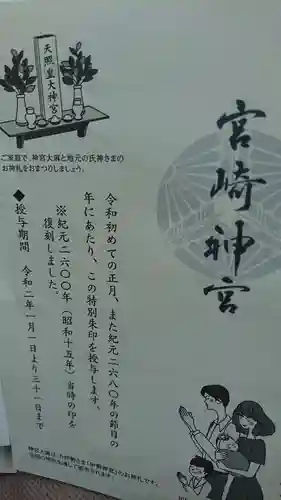 宮崎神宮
天照皇大神宮
ご家庭で、神宮大麻と地元の氏神さまの
お神札をおまつりしましょう。
令和初めての正月、また紀元二六八〇年の節目の
年にあたり、この特別朱印を授与します。
※紀元二六〇〇年（昭和十五年）当時の印を
復刻しました。
◆授与期間　令和二年一月一日より三十一日まで